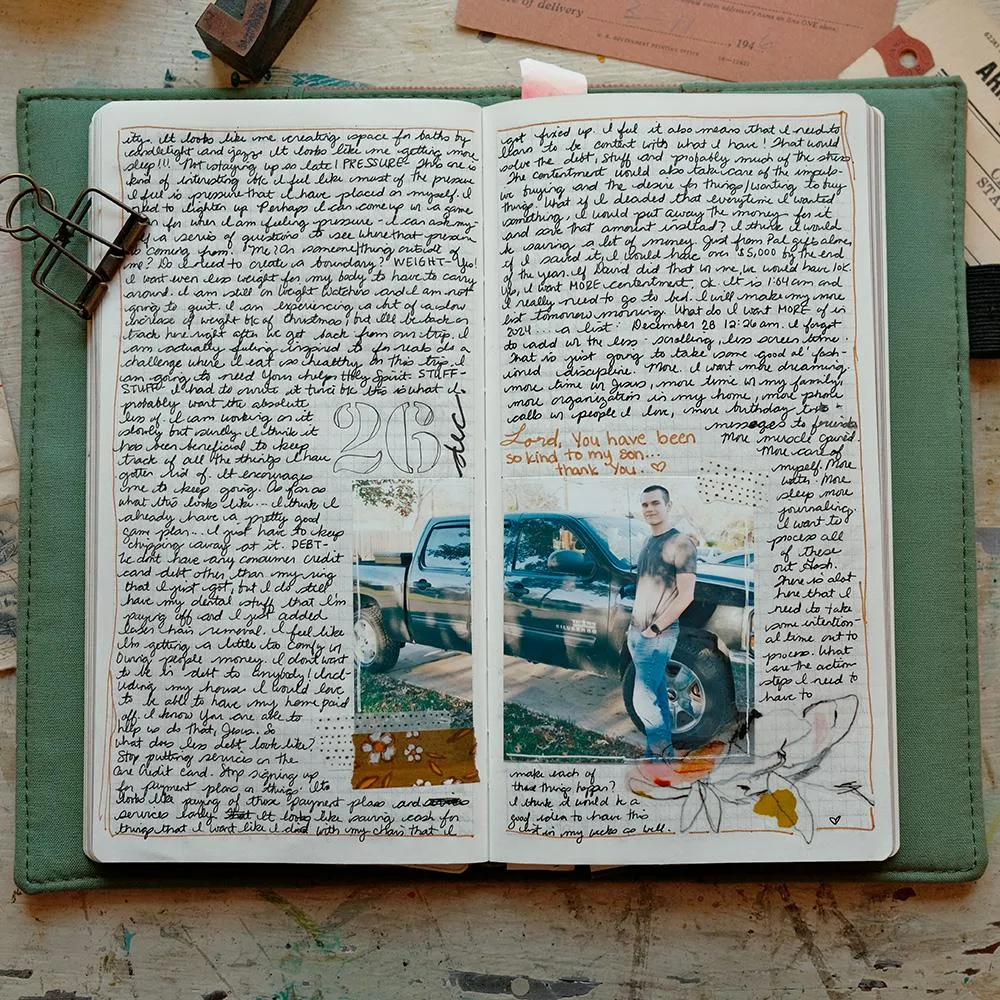 of delivery
194
U. S. GOVERNMENT PRINTING OFFICE
It looks like me creating space for baths by
candlelight and jazz. It looks like me getting more
sleep!!! Not staying up so late! PRESSURE- This one is
kind of interesting b/c I feel like most of the pressure
I feel is pressure that I have placed on myself. I
need to lighten up. Perhaps I can come up w a game
for when I am feeling pressure - I can ask my-
a series of questions to see where that pressure
is coming from. Me? Or someone/thing outside of
me? Do I need to create a boundary? WEIGHT- Yes!
I want even less weight for my body to have to carry
around. I am still on Weight Watchers and I am not
going to quit. I am experiencing a bit of a slow
increase of weight b/c of Christmas, but I'll be back on
track here right after we get back from our trip. I
am actually feeling inspired to for reals do a
challenge where I eat so healthy on this trip. I
am going to need Your help Holy Spirit. STUFF-
STUFF- I had to write it twice b/c this is what I
probably want the absolute
less of. I am working on it
slowly but surely. I think it
has been beneficial to keep
track of all the things I have
gotten rid of. It encourages
me to keep going. As far as
what this looks like... I think I
already have a pretty good
game plan... I just have to keep
chipping away at it. DEBT-
We dont have any consumer credit
card debt other than my ring
that I just got, but I do still
have my dental stuff that I'm
paying off and I just added
laser hair removal. I feel like
I'm getting a little too comfy w
owing people money. I dont want
to be in debt to anybody! Incl-
uding my house. I would love
to be able to have my home paid
off. I know You are able to
help us do that, Jesus. So
what does less debt look like?
Stop putting services on the
Care Credit card. Stop signing up
for payment plans on things. It
looks like paying of those payment plans and
services early. It looks like saving cash for
things that I want like I did with my chair that I
26
dec.
got fixed up. I feel it also means that I need to
learn to be content with what I have! That would
solve the debt, stuff and probably much of the stress.
The contentment would also take care of the impuls-
ive buying and the desire for things/wanting to buy
things. What if I decided that everytime I wanted
something, I would put away the money for it
and save that amount instead? I think I would
be saving a lot of money. Just from Pal gifts alone,
if I saved it, I would have over $5,000 by the end
of the year. If David did that w me, we would have 10K.
Yep, I want MORE contentment. Ok. It is 1:04 am and
I really need to go to bed. I will make my more
list tomorrow morning. What do I want MORE of in
2024 ... a list: December 28 12:26am. I forgot
to add in the less - scrolling, less screen time.
That is just going to take some good ol' fash-
ioned discipline. More. I want more dreaming.
more time w Jesus, more time w my family,
more organization in my home, more phone
calls w people I love, more birthday
messages to friends.
More muscle gained.
More care of
myself. More
water. More
sleep. more
journaling.
I want to
process all
of these
out Hosh.
There is alot
here that I
need to take
some intention-
al time out to
process. What
are the action
steps I need to
have to
Lord, You have been
so kind to my son...
thank You.. ♡
SILVERADO
make each of
these things happen?
I think it would be a
good idea to have this
list in my weeks as well.
♡